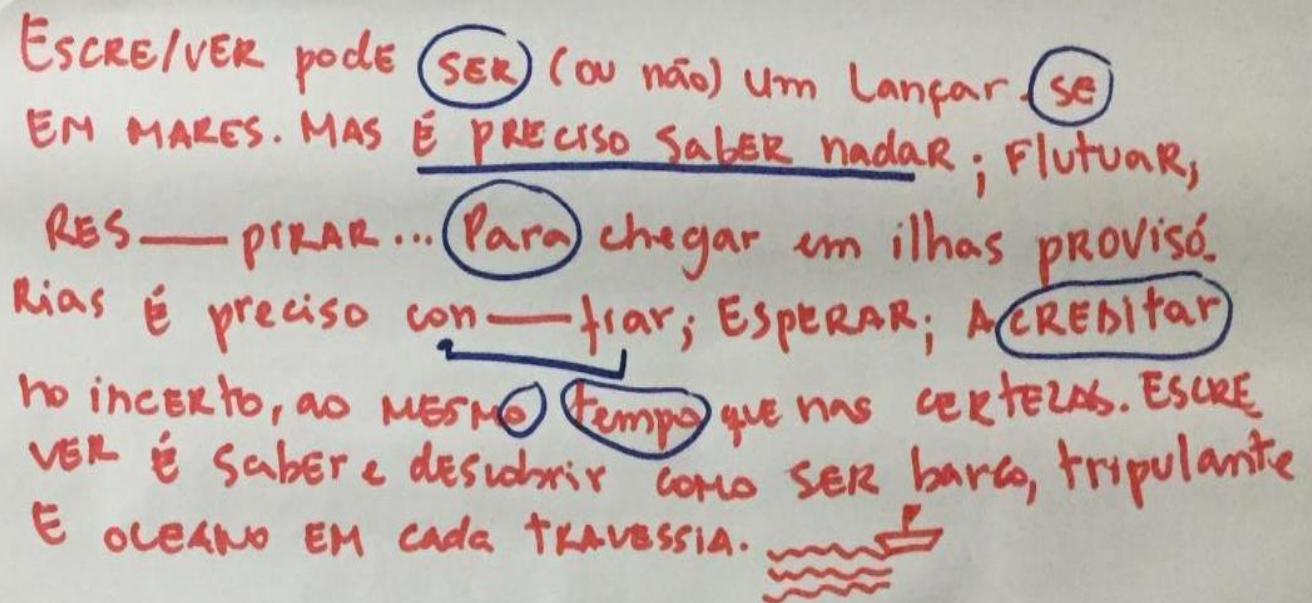 ESCRE/VER podE SER (ou não) um Lançar-se
EM MARES. MAS É PRECISO SabER nadaR; FlutuaR,
RES — PIRAR... Para chegar em ilhas PROVISÓ-
Rias É preciso con — fiar; ESPERAR; ACREDItar
no incERto, ao MESMO tempo quE nas CERtEZAS. ESCRE
VER É SabEr e descobrir COMO SER barco, tripulantE
E OCEANO EM cada TRAVESSIA.